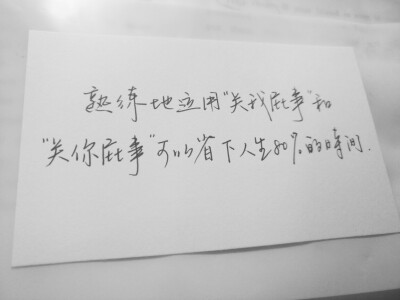 熟练地运用“关我屁事”和
“关你屁事”可以省下人生80%的时间.